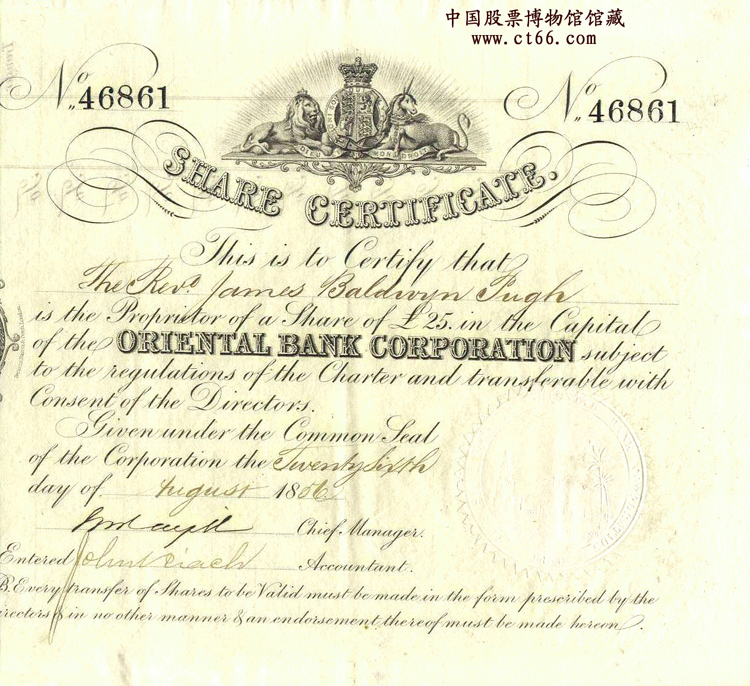 中国股票博物馆馆藏
www.ct66.com
No. 46861
No. 46861
SHARE CERTIFICATE.
This is to Certify that
The Revd. James Baldwyn Pugh
is the Proprietor of a Share of £25. in the Capital
of the ORIENTAL BANK CORPORATION subject
to the regulations of the Charter and transferable with
Consent of the Directors.
Given under the Common Seal
of the Corporation the Twenty Sixth
day of August 1856
Chief Manager.
Entered Accountant.
B. Every transfer of Shares to be Valid must be made in the form prescribed by the
irectors & in no other manner & an endorsement thereof must be made hereon.